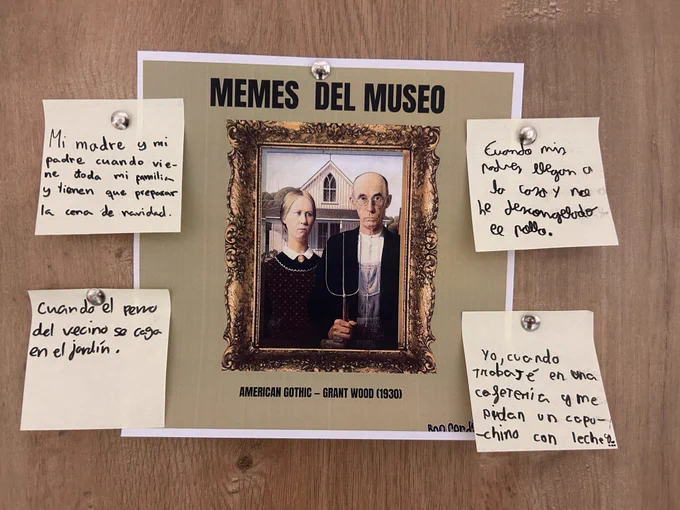 MEMES DEL MUSEO
Mi madre y mi
padre cuando vie-
ne toda mi familia
y tienen que preparar
la cena de navidad.
Cuando mis
padres llegan a
la casa y no
he descongelado
el pollo.
Cuando el perro
del vecino se caga
en el jardín.
Yo, cuando
trabajé en una
cafetería y me
pidan un capu-
-chino con leche
AMERICAN GOTHIC – GRANT WOOD (1930)